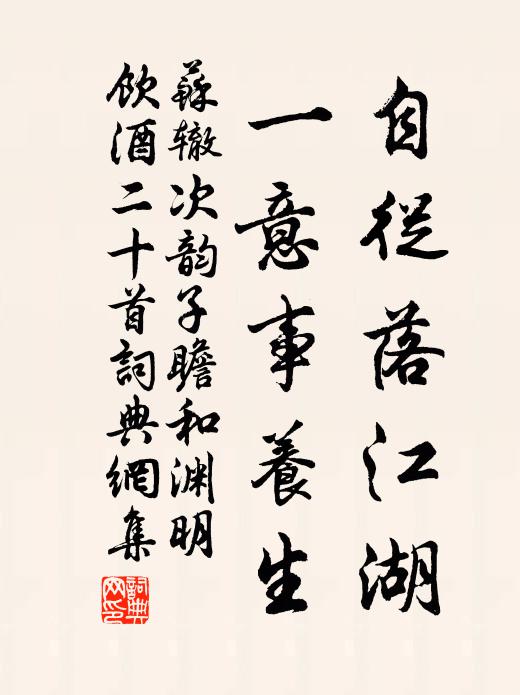 自從落江湖
一意事養生
蘇辙次韵子瞻和渊明
飲酒二十首詞典網集
詞典网印